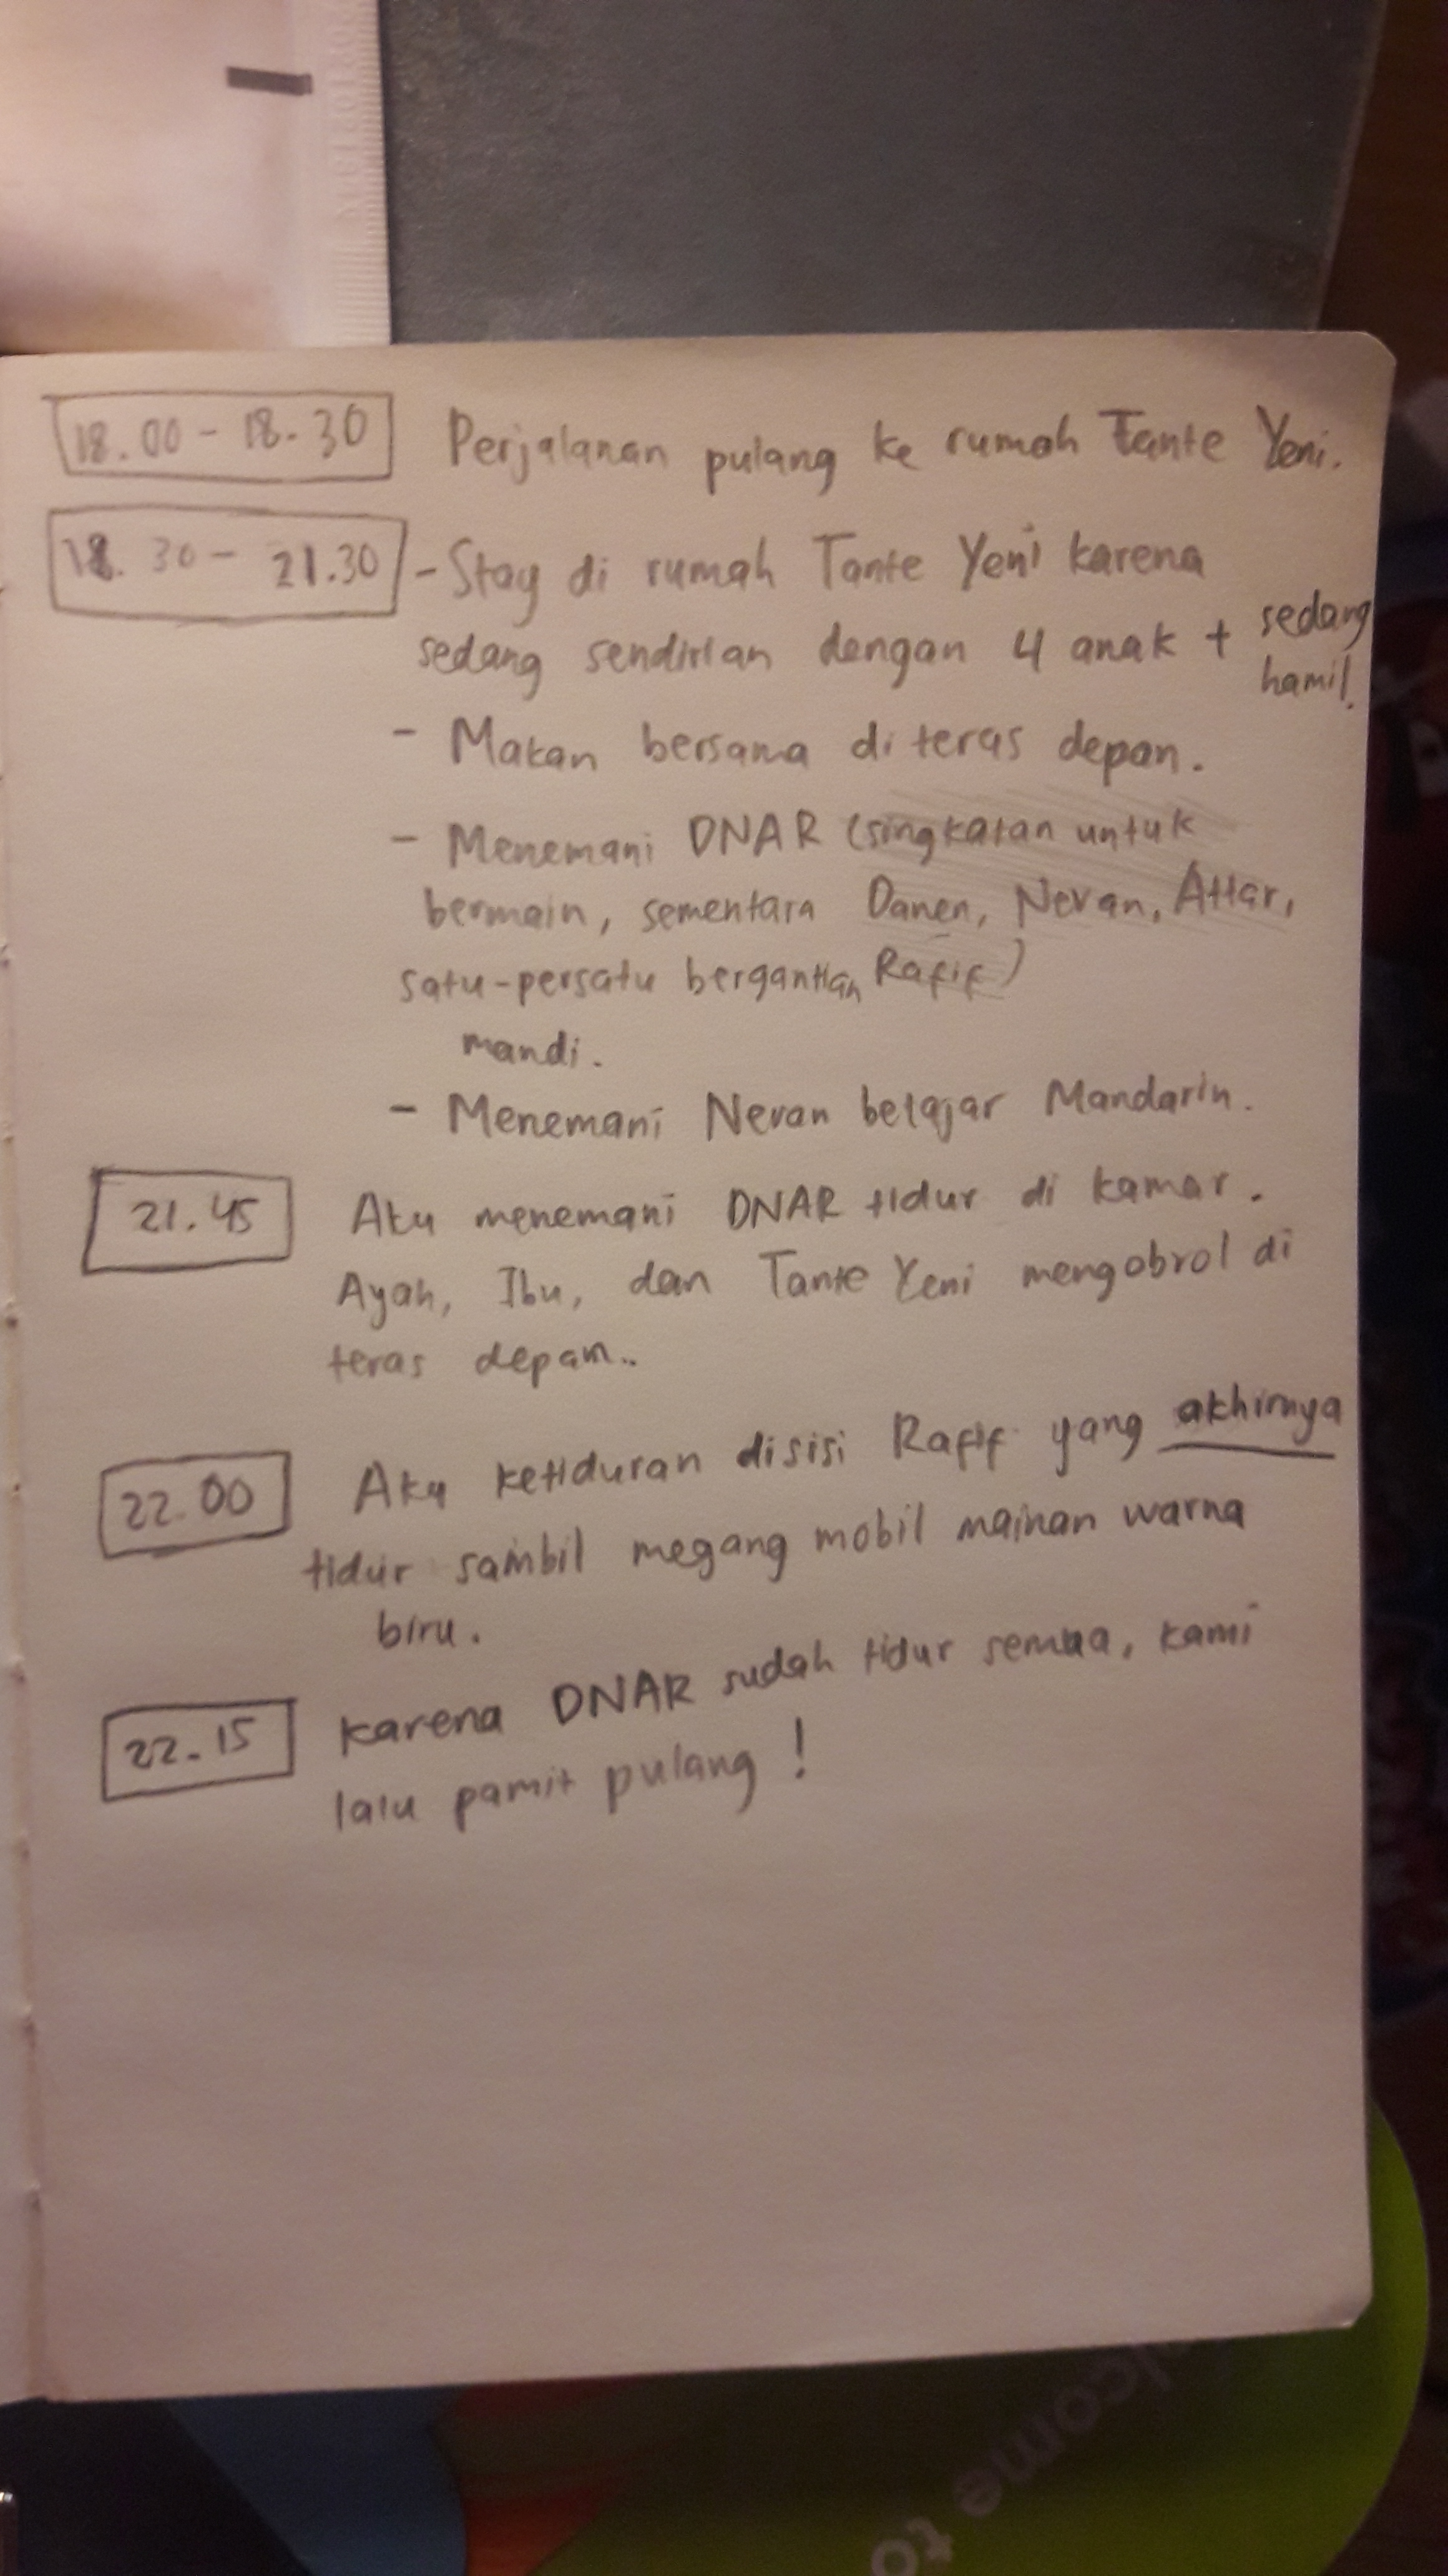 18.00 - 18.30 Perjalanan pulang ke rumah Tante Yeni.
18.30 - 21.30 - Stay di rumah Tante Yeni karena
sedang sendirian dengan 4 anak + sedang
hamil.
- Makan bersama di teras depan.
- Menemani DNAR (singkatan untuk
bermain, sementara Danen, Nevan, Attar,
satu-persatu bergantian Rafif)
mandi.
- Menemani Nevan belajar Mandarin.
21.45 Aku menemani DNAR tidur di kamar.
Ayah, Ibu, dan Tante Yeni mengobrol di
teras depan..
22.00 Aku ketiduran disisi Rafif yang akhirnya
tidur sambil megang mobil mainan warna
biru.
22.15 Karena DNAR sudah tidur semua, kami
lalu pamit pulang !
lcome to